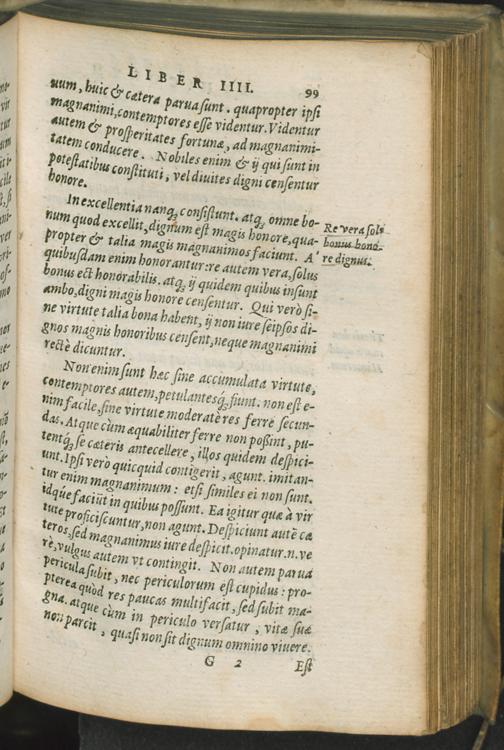 LIBER IIII. 99
uum, huic & cætera parua sunt. quapropter ipsi
magnanimi, contemptores esse videntur. Videntur
autem & prosperitates fortunæ, ad magnanimi-
tatem conducere. Nobiles enim & ij qui sunt in
potestatibus constituti, vel diuites digni censentur
honore.
In excellentia nanq; consistunt. atq; omne bo-
num quod excellit, dignum est magis honore, qua-
propter & talia magis magnanimos faciunt. A'
quibusdam enim honorantur: re autem vera, solus
bonus est honorabilis. atq; ij quidem quibus insunt
ambo, digni magis honore censentur. Qui verò si-
ne virtute talia bona habent, ij non iure seipsos di-
gnos magnis honoribus censent, neque magnanimi
rectè dicuntur.
Re vera solꝰ
bonus hono-
re dignus.
Non enim sunt hæc sine accumulata virtute,
contemptores autem, petulantesq; fiunt. non est e-
nim facile, sine virtute moderatè res ferre secun-
das. Atque cùm æquabiliter ferre non possint, pu-
tentq; se cæteris antecellere, illos quidem despici-
unt. Ipsi verò quicquid contigerit, agunt. imitan-
tur enim magnanimum: etsi similes ei non sunt.
idq́ue faciūt in quibus possunt. Ea igitur quæ à vir
tute proficiscuntur, non agunt. Despiciunt autē cæ
teros, sed magnanimus iure despicit. opinatur .n. ve
rè, vulgus autem vt contingit. Non autem parua
pericula subit, nec periculorum est cupidus: pro-
pterea quòd res paucas multifacit, sed subit ma-
gna. atque cùm in periculo versatur, vitæ suæ
non parcit, quasi non sit dignum omnino viuere.
G 2 Est